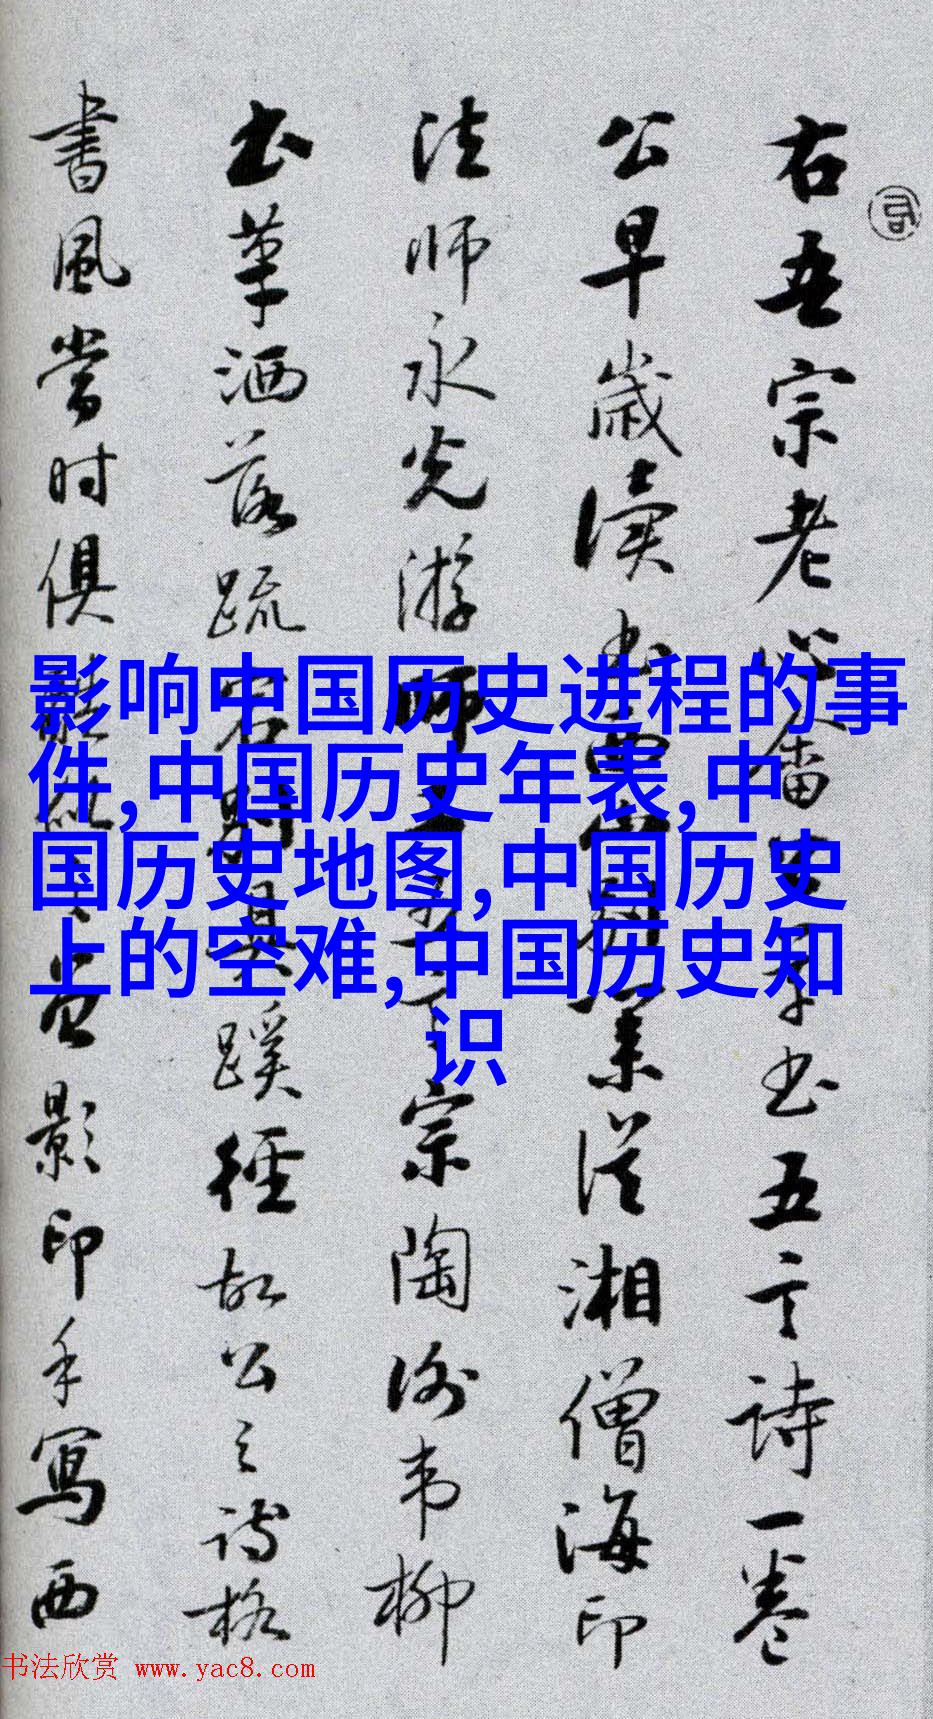 影响中国历史进程的事
件,中国历史年表,中
国历史地图,中国历史
上的空难,中国历史知
识
右吾宗老畬書五言詩一卷
公早歲讀書業從湘僧海印
法師永光游師宗陶謝韋柳
書草洒落疏具蹊徑故公之詩格
書風當時俱影印手寫西
书法欣赏 www.yac8.com